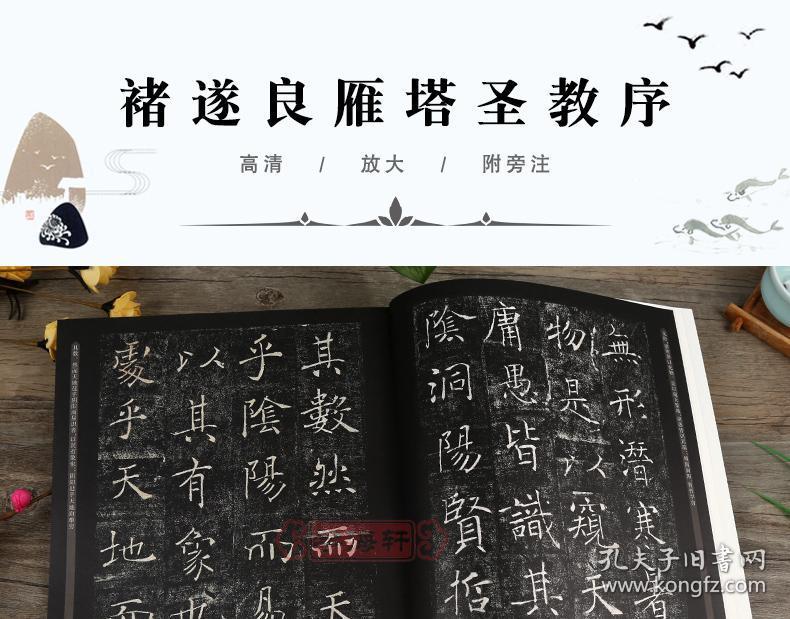 褚遂良雁塔圣教序
高清 / 放大 / 附旁注
無形潛寒暑
物是以窺天
庸愚皆識其
陰洞陽賢哲
其數然而天
乎陰陽而易
以其有象也
處乎天地而
孔夫子旧书网
www.kongfz.com